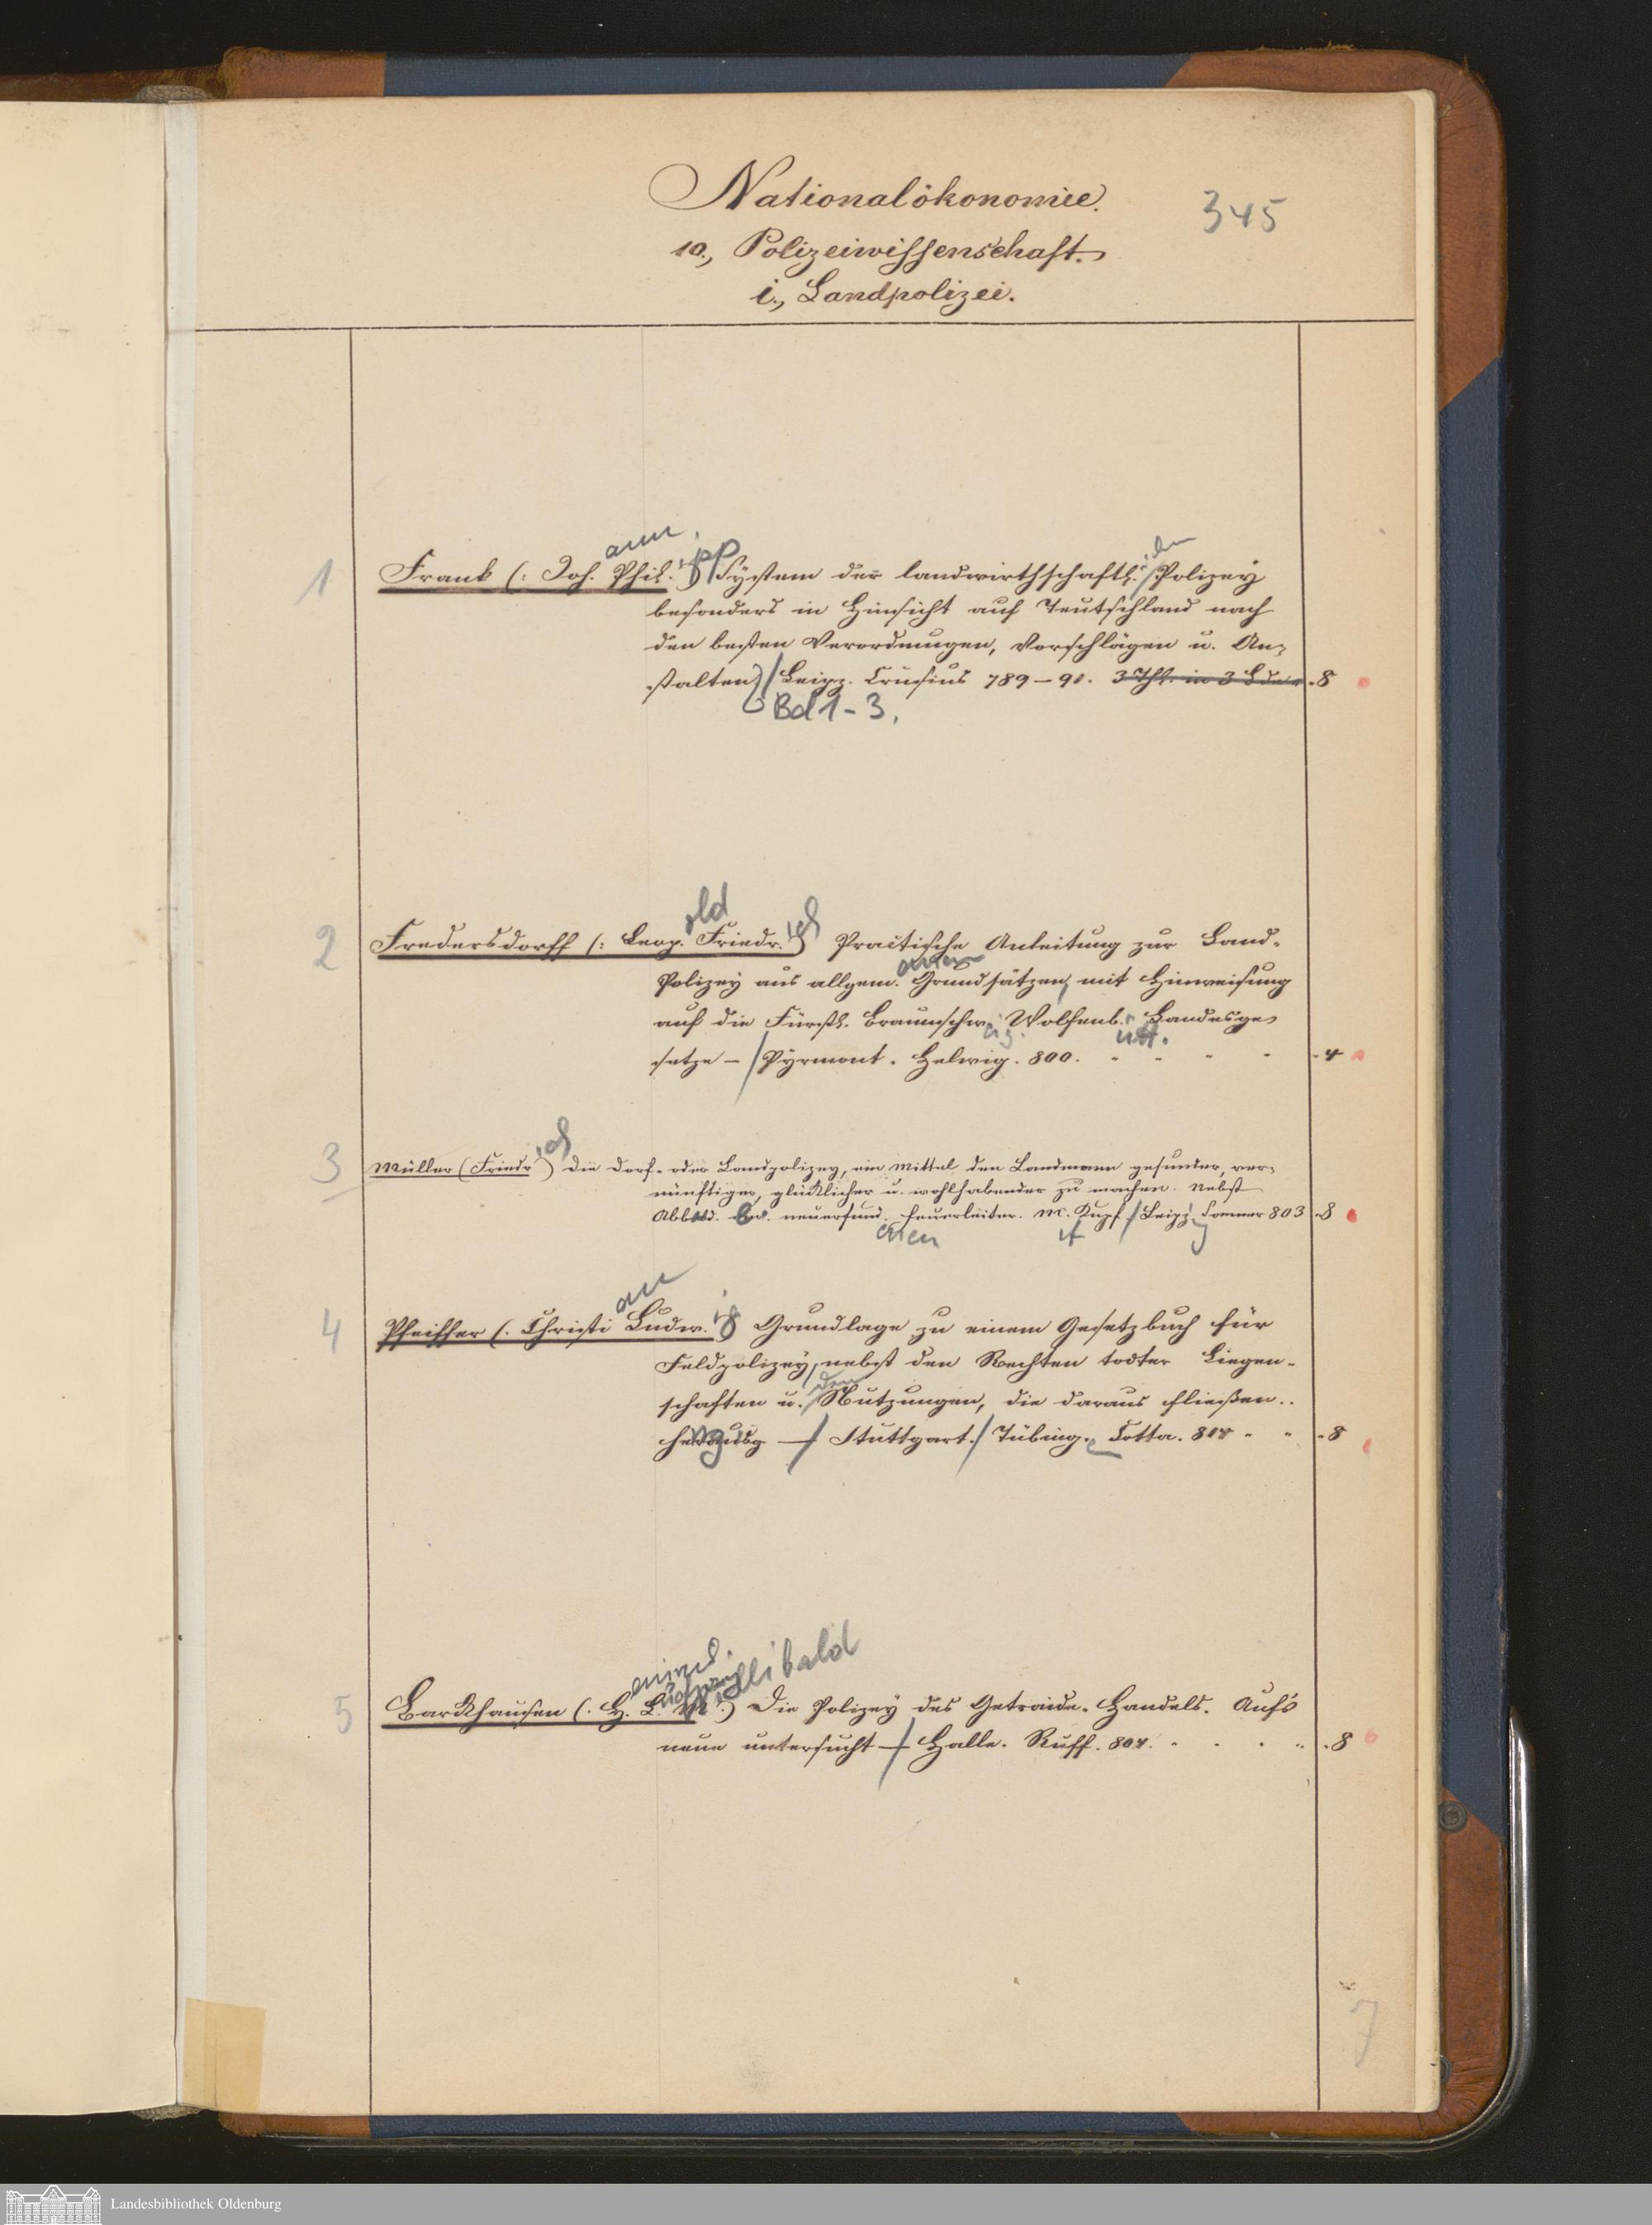 Nationalökonomie.
345
10., Polizeiwissenschaft.
i., Landpolizei.
ann
ipp
en
1 Frank (: Joh. Phil. :) System der landwirthschaftl. Polizey
besonders in Hinsicht auf Teutschland nach
den besten Verordnungen, Vorschlägen u. An-
stalten / Leipz. Crusius 789–91. 3 Thl. in 3 Bden . 8
Bd 1-3.
old
ich
2 Fredersdorff (: Leop. Friedr. :) Practische Anleitung zur Land-
Polizey aus allgem. Grundsätzen, mit Hinweisung
auf die Fürstl. Braunschw. Wolfenb. Landesge
ig.
ütt.
setze – / Pyrmont. Helwig. 800. . 4
ich
3 Müller (Friedr) Die Dorf- oder Landpolizey, ein Mittel den Landmann gesunder, ver-
nünftiger, glücklicher u. wohlhabender zu machen. Nebst
Abbild. neuerfund. Feuerleiter. M. Kupf / Leipz. Sommer 803 . 8
enen
it
g
an
ig
4 Pfeiffer (. Christi Ludw. Grundlage zu einem Gesetzbuch für
Feldpolizey, nebst den Rechten todter Liegen-
den
schaften u. Nutzungen, die daraus fließen..
herausg – / Stuttgart. / Tübing. Cotta. 814 . 8
illibald
5 Barkhausen (. H. L. W.) Die Polizey des Getraide-Handels. Aufs
neue untersucht – / Halle. Ruff. 804. . 8
7
Landesbibliothek Oldenburg